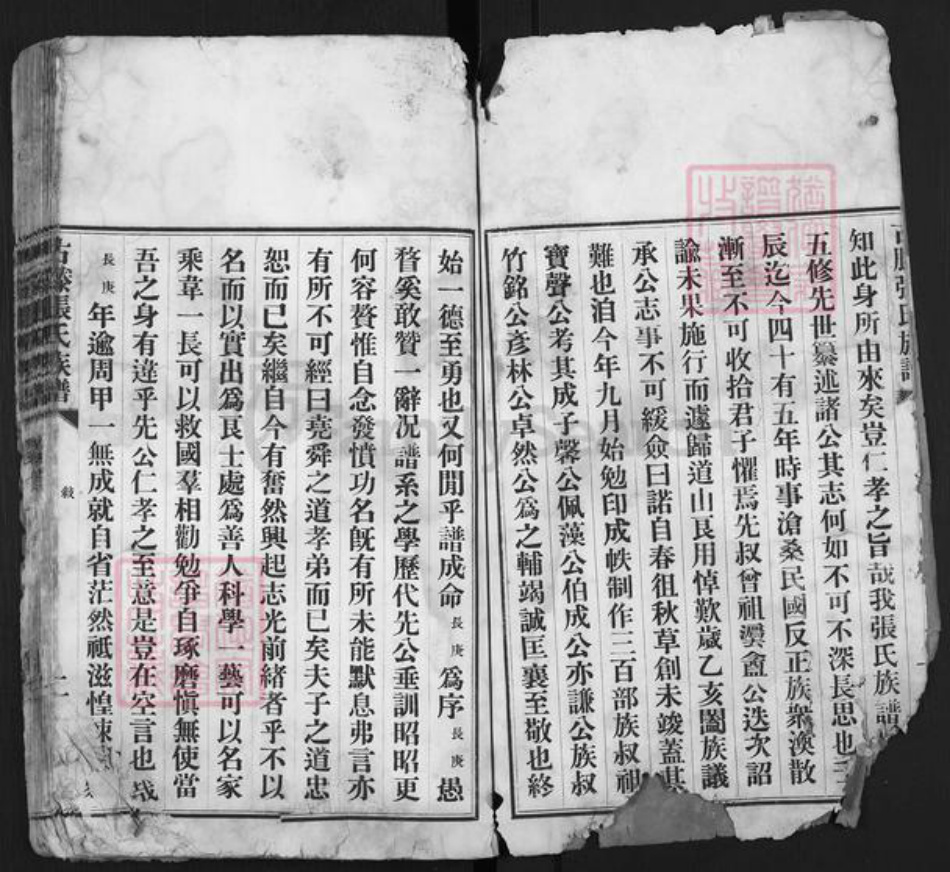 知此身所由來矣豈仁孝之旨哉我張氏族譜
五修先世纂述諸公其志何如不可不深長思也
辰迄今四十有五年時事滄桑民國反正族衆渙散
漸至不可收拾君子懼焉先叔曾祖㵎盦公迭次詔
諭未果施行而遽歸道山艮用悼歎歲乙亥闔族議
承公志事不可緩僉曰諾自春徂秋草創未竣蓋其
難也洎今年九月始勉印成帙制作三百部族叔祖
寶聲公考其成子馨公佩藻公伯成公亦謙公族叔
竹銘公彥林公卓然公爲之輔竭誠匡襄至敬也終
始一德至勇也又何閒乎譜成命長庚爲序長庚愚
瞀奚敢贊一辭況譜系之學歷代先公垂訓昭昭更
何容贅惟自念發憤功名旣有所未能默息弗言亦
有所不可經曰堯舜之道孝弟而已矣夫子之道忠
恕而已矣繼自今有奮然興起志光前緒者乎不以
名而以實出爲良士處爲善人科學一藝可以名家
乘韋一長可以救國羣相勸勉爭自琢磨愼無使當
吾之身有違乎先公仁孝之至意是豈在空言也哉
長庚年逾周甲一無成就自省茫然祗滋惶悚
古滕張氏族譜
敍
二